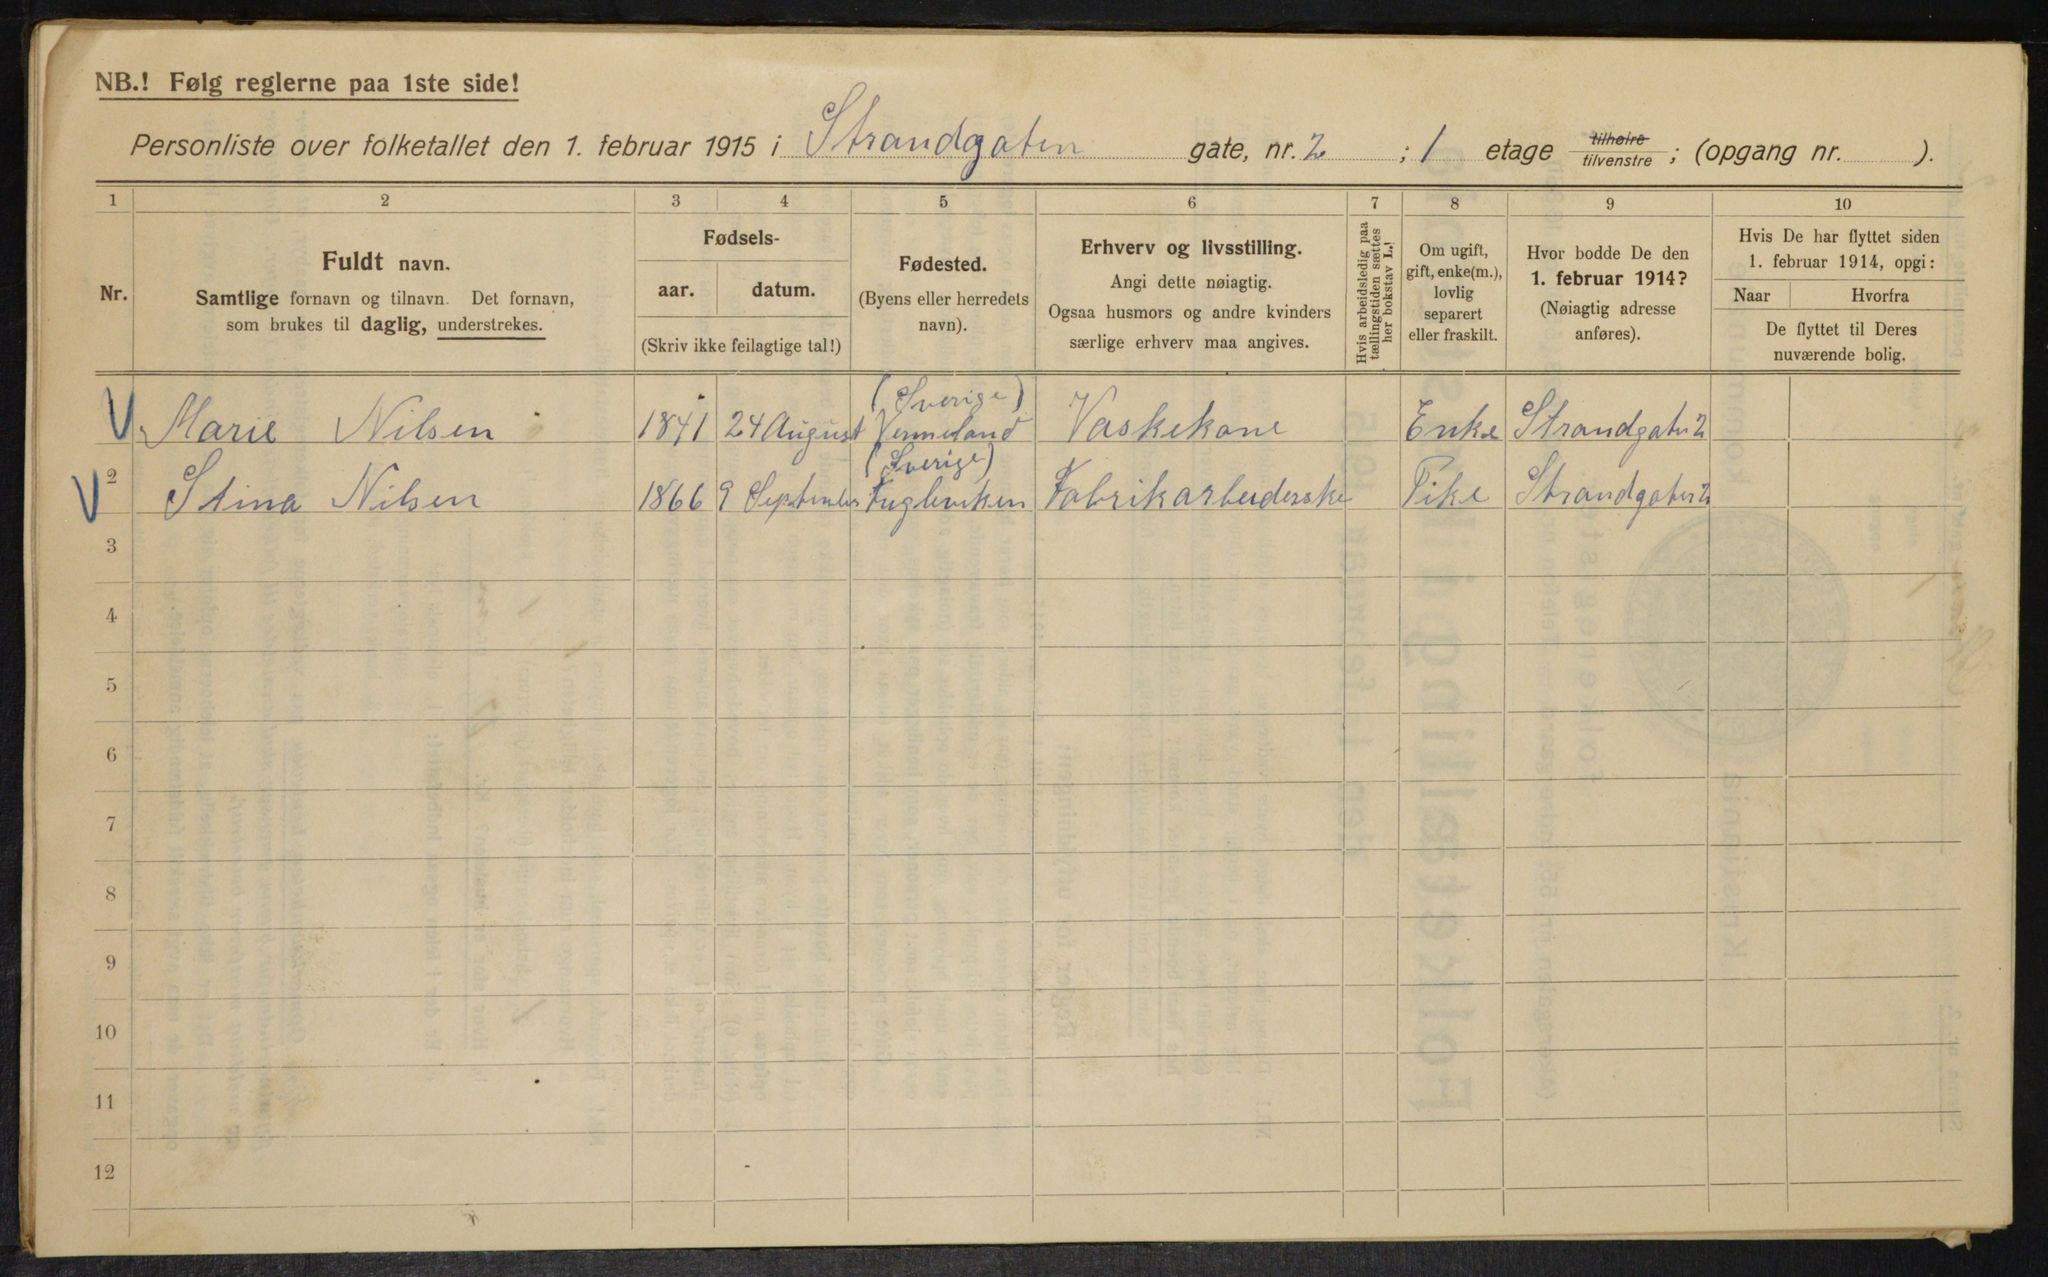 NB.! Følg reglerne paa 1ste side!
Personliste over folketallet den 1. februar 1915 i Strandgaten gate, nr. 2 ; 1 etage tilhøire tilvenstre ; (opgang nr. ).
1 2 3 4 5 6 7 8 9 10
Nr.
Fuldt navn.
Samtlige fornavn og tilnavn. Det fornavn,
som brukes til daglig, understrekes.
Fødsels-
aar. datum.
(Skriv ikke feilagtige tal!)
Fødested.
(Byens eller herredets
navn).
Erhverv og livsstilling.
Angi dette nøiagtig.
Ogsaa husmors og andre kvinders
særlige erhverv maa angives.
Hvis arbeidsledig paa
tællingstiden sættes
her bokstav L.!
Om ugift,
gift, enke(m.),
lovlig
separert
eller fraskilt.
Hvor bodde De den
1. februar 1914?
(Nøiagtig adresse
anføres).
Hvis De har flyttet siden
1. februar 1914, opgi:
Naar Hvorfra
De flyttet til Deres
nuværende bolig.
V Marie Nilsen 1841 24 August (Sverige) Vermeland Vaskekone Enke Strandgaten 2
V 2 Stina Nilsen 1866 9 September (Sverige) Fugleviken Fabrikarbeiderske Pike Strandgaten 2
3
4
5
6
7
8
9
10
11
12